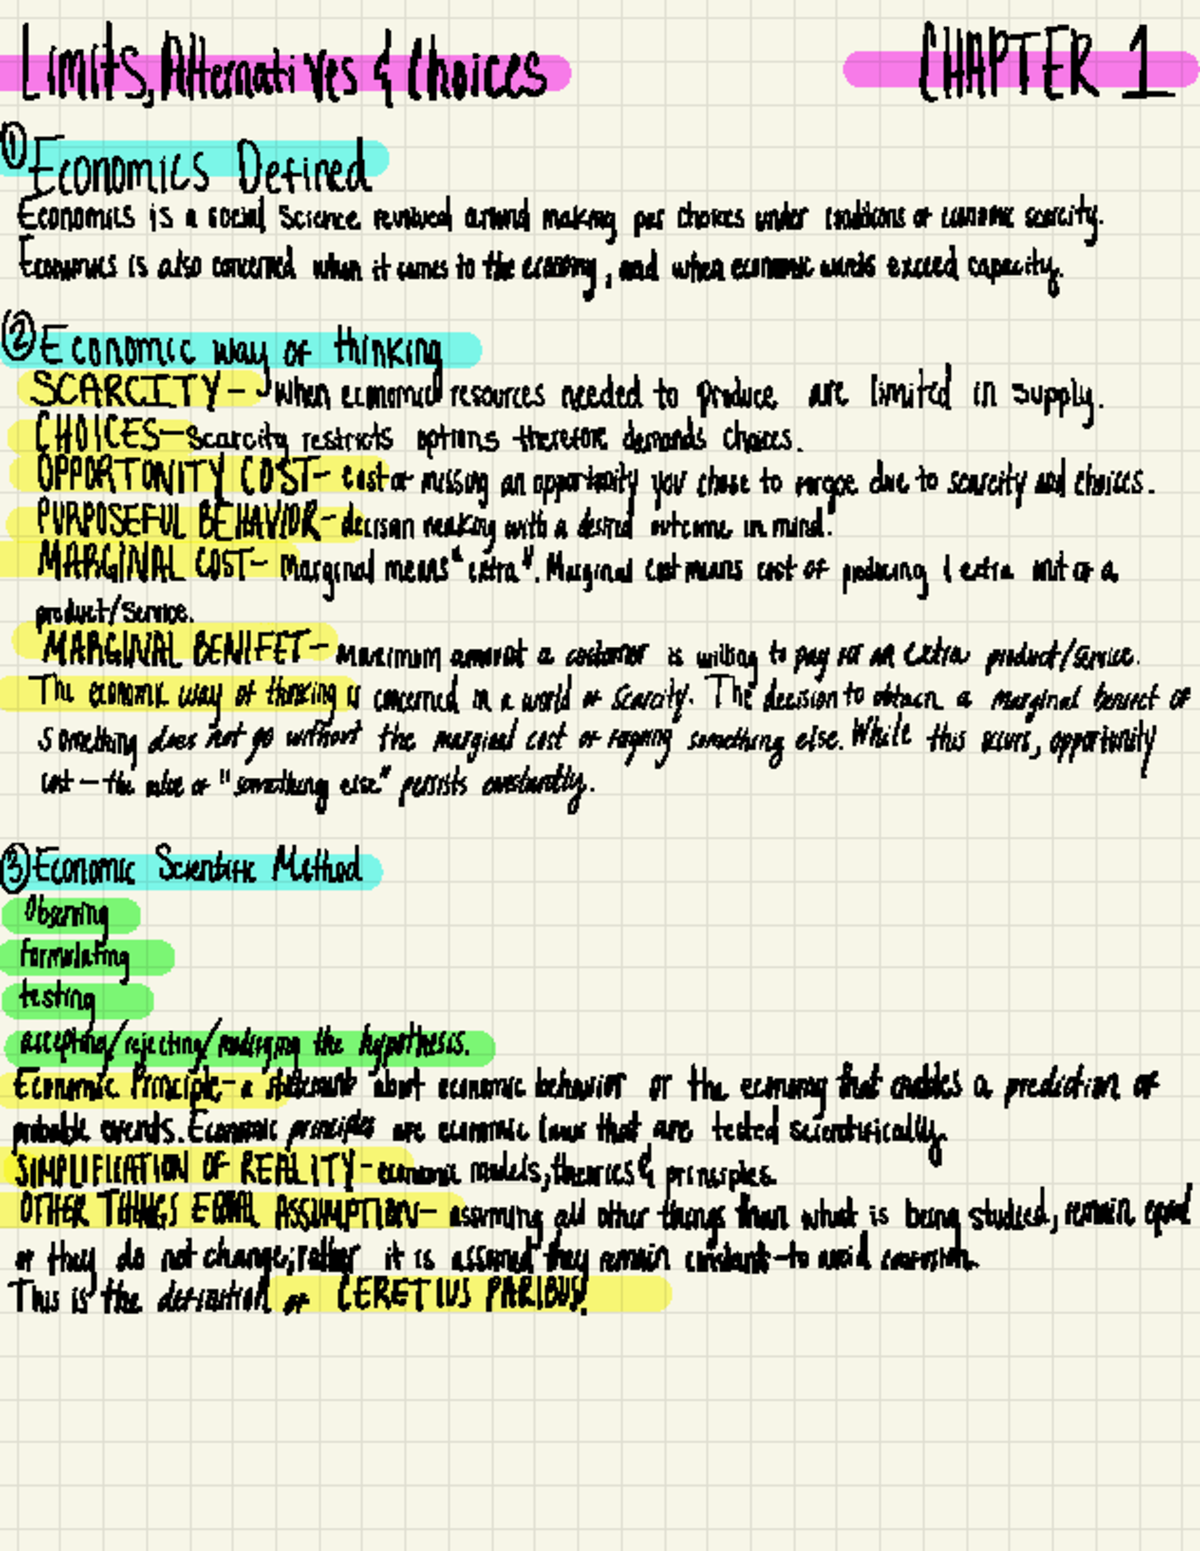 Limits, Alternatives & Choices
CHAPTER 1
① Economics Defined
Economics is a social science revolved around making choices under conditions of economic scarcity.
Economics is also concerned when it comes to the economy, and when economic wants exceed capacity.
② Economic way of thinking
SCARCITY- When economic resources needed to produce are limited in supply.
CHOICES-Scarcity restricts options therefore demands choices.
OPPORTUNITY COST- cost of missing an opportunity you chose to forgoe due to scarcity and choices.
PURPOSEFUL BEHAVIOR- decision making with a desired outcome in mind.
MARGINAL COST- Marginal means "extra". Marginal cost means cost of producing 1 extra unit of a
product/service.
MARGINAL BENIFET- maximum amount a customer is willing to pay for an extra product/service.
The economic way of thinking is concerned in a world of scarcity. The decision to obtain a marginal benefit of
something does not go without the marginal cost of forgoing something else. While this occurs, opportunity
cost - the value of "something else" persists constantly.
③ Economic Scientific Method
Observing
formulating
testing
accepting/rejecting/modifying the hypothesis.
Economic Principle- a statement about economic behavior or the economy that enables a prediction of
probable events. Economic principles are economic laws that are tested scientifically.
SIMPLIFICATION OF REALITY- economic models, theories & principles.
OTHER THINGS EQUAL ASSUMPTION- assuming all other things than what is being studied, remain equal
or they do not change; rather it is assumed they remain constant-to avoid confusion.
This is the definition of CERETIUS PARIBUS!